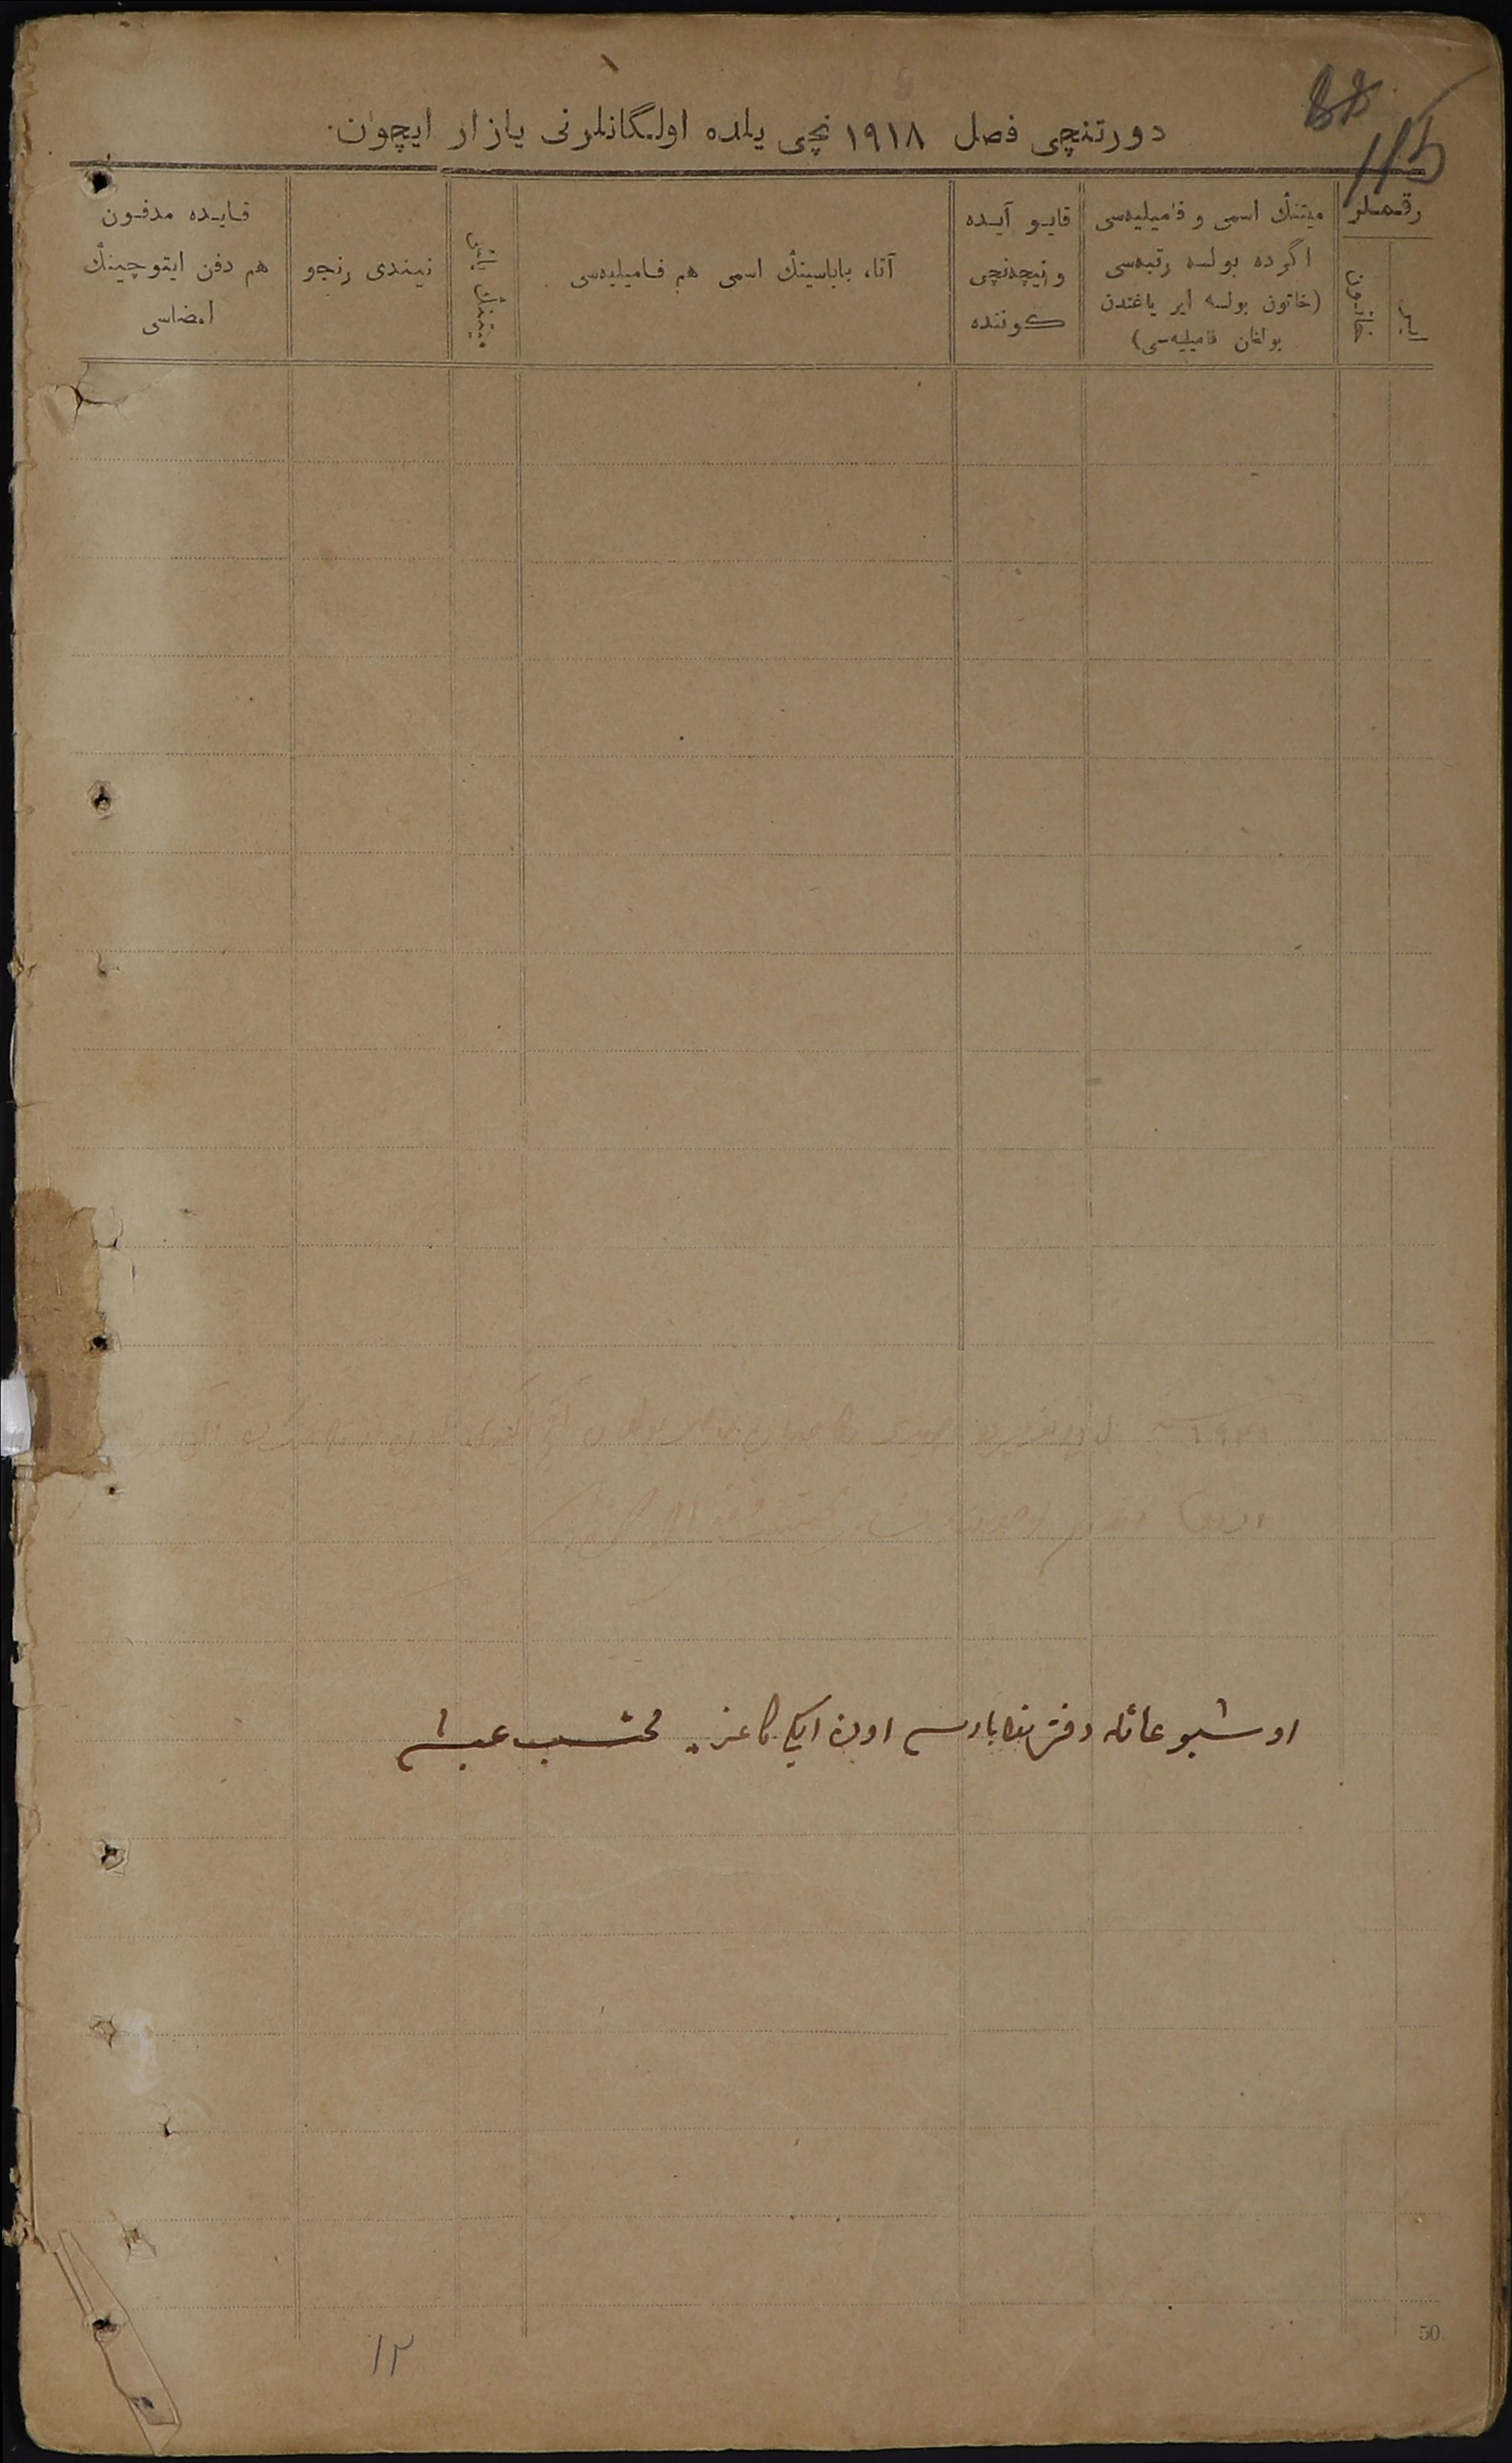 88
115
دورتنچی فصل ١٩١٨ نچی یلده اولگانلرنی یازار ایچون.
رقملر
ایر
خاتون
میتنڭ اسمی و فامیلیه‌سی
اگرده بولسه رتبه‌سی
(خاتون بولسه ایر یاغندن
بولغان فامیلیه‌سی)
قایو آیده
و نیچه‌نچی
کوننده
آتا، باباسینڭ اسمی هم فامیلیه‌سی
میتنڭ یاشی
نیندی رنجو
قایده مدفون
هم دفن ایتوچینڭ
امضاسی
اوشبو عائله دفترنده باریسی اون ایکی کاغذ. محتسب
١٢
50